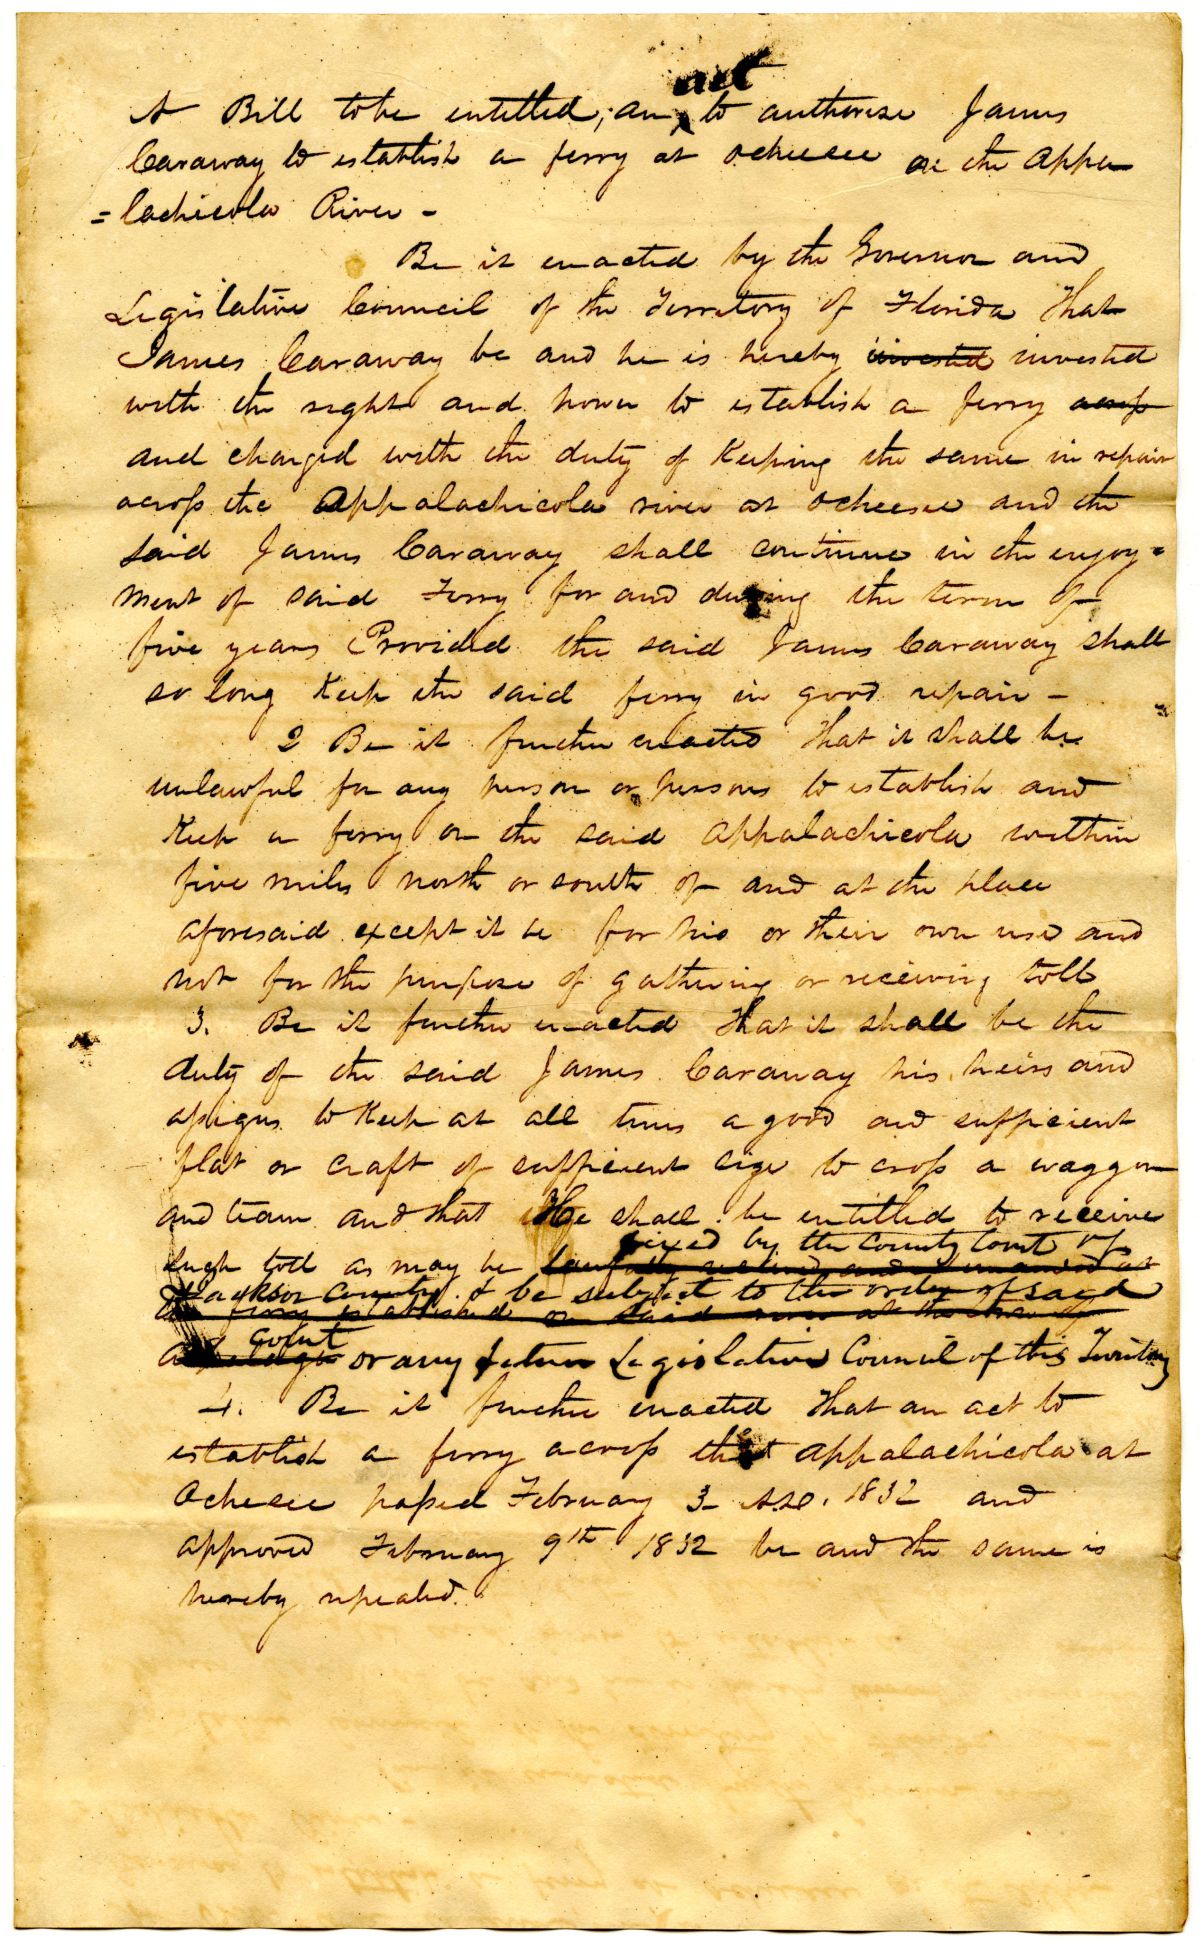 act
A Bill to be entitled, an to authorise James
Caraway to establish a ferry at Ocheesee on the Appa
=lachicola River -
Be it enacted by the Governor and
Legislative Council of the Territory of Florida That
James Caraway be and he is hereby invested invested
with the right and power to establish a ferry across
and charged with the duty of Keeping the same in repair
across the Appalachicola river at Ocheesee and the
said James Caraway shall continue in the enjoy=
ment of said Ferry for and during the term of
five years Provided the said James Caraway shall
so long Keep the said ferry in good repair -
2 Be it further enacted That it shall be
unlawful for any person or persons to establish and
Keep a ferry on the said Appalachicola within
five miles north or south of and at the place
aforesaid except it be for his or their own use and
not for the purpose of gathering or receiving toll
3. Be it further enacted That it shall be the
duty of the said James Caraway his heirs and
assigns to Keep at all times a good and sufficient
flat or craft of sufficient size to cross a waggon
and team and that He shall be entitled to receive
fixed by the County Court of
such toll as may be lawfully and at
Jackson County & be subject to the order of said
ferry established on said river at the
court
or any future Legislative Council of this Territory
4. Be it further enacted That an act to
establish a ferry across the Appalachicola at
Ochesee passed February 3 A.D. 1832 and
approved February 9th 1832 be and the same is
hereby repealed.